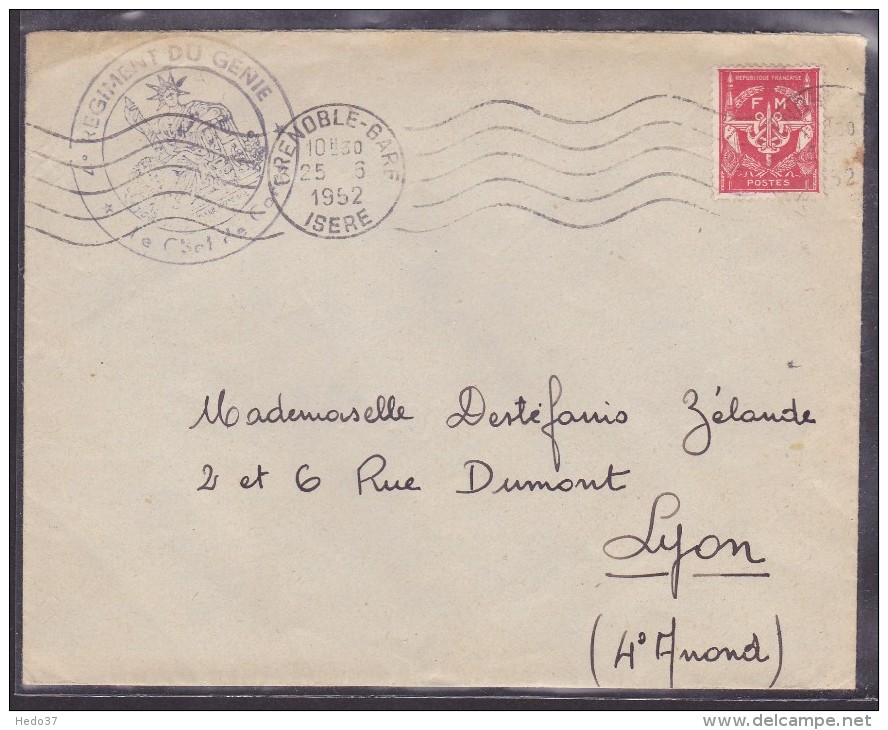 4e REGIMENT DU GENIE
Le Chef de Corps
GRENOBLE-GARE
10H30
25 6
1952
ISERE
REPUBLIQUE FRANÇAISE
F M
POSTES
Mademoiselle Destéfanis Zélande
2 et 6 Rue Dumont
Lyon
(4e Arrond)
Hedo37
delcampe.net